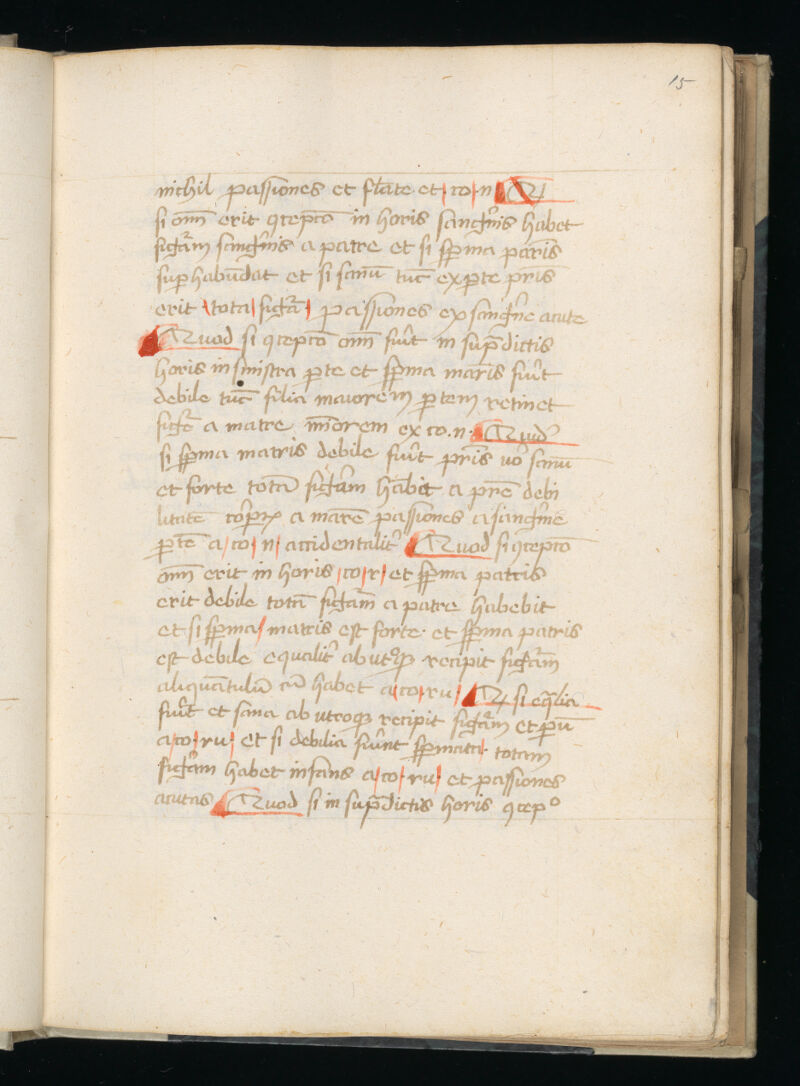 15
nichil passiones et flāte et co n Q
si om̄ erit ꝯceptō in horis sangīs habet
figām sangīs a patre et si sp̄ma pār̄is
suphabūdat et si sanū tūc ex p̄te pr̄is
erit tota figā passiones ex sangīe acute
Quod si ꝯceptō om̄ fiūt in supradictis
horis in sinistra p̄te et sp̄ma mar̄is fiūt
debile tūc filia maiorem partem retinet
figē a matre mīorem ex co. n. Quod
si sp̄ma matris debile fiūt pr̄is uō sanū
et forte totā figām habēt a pr̄e debi
litatē a mar̄e passiones a sangīe
p̄te a co n accidentalit̄ Quod si ꝯceptō
om̄ erit in horis co r et sp̄ma patris
erit debile totā figām a patre habebit
et si sp̄ma matris est forte et sp̄ma patris
est debile equalit̄ ab utoqꝫ recipit figām
aliquātulū cū habet a co ru Q si eq̄lia
fiūt et sana ab utroqꝫ recipit figām et parū
a co ru et si debilia fiūnt sp̄mata totam
figām habet infans a co ru et passiones
acutas Quod si in supradictis horis ꝯcepº